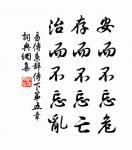 安而不忘危
存而不忘亡
治而不忘亂
易傳系辭傳下第五章
詞典網集